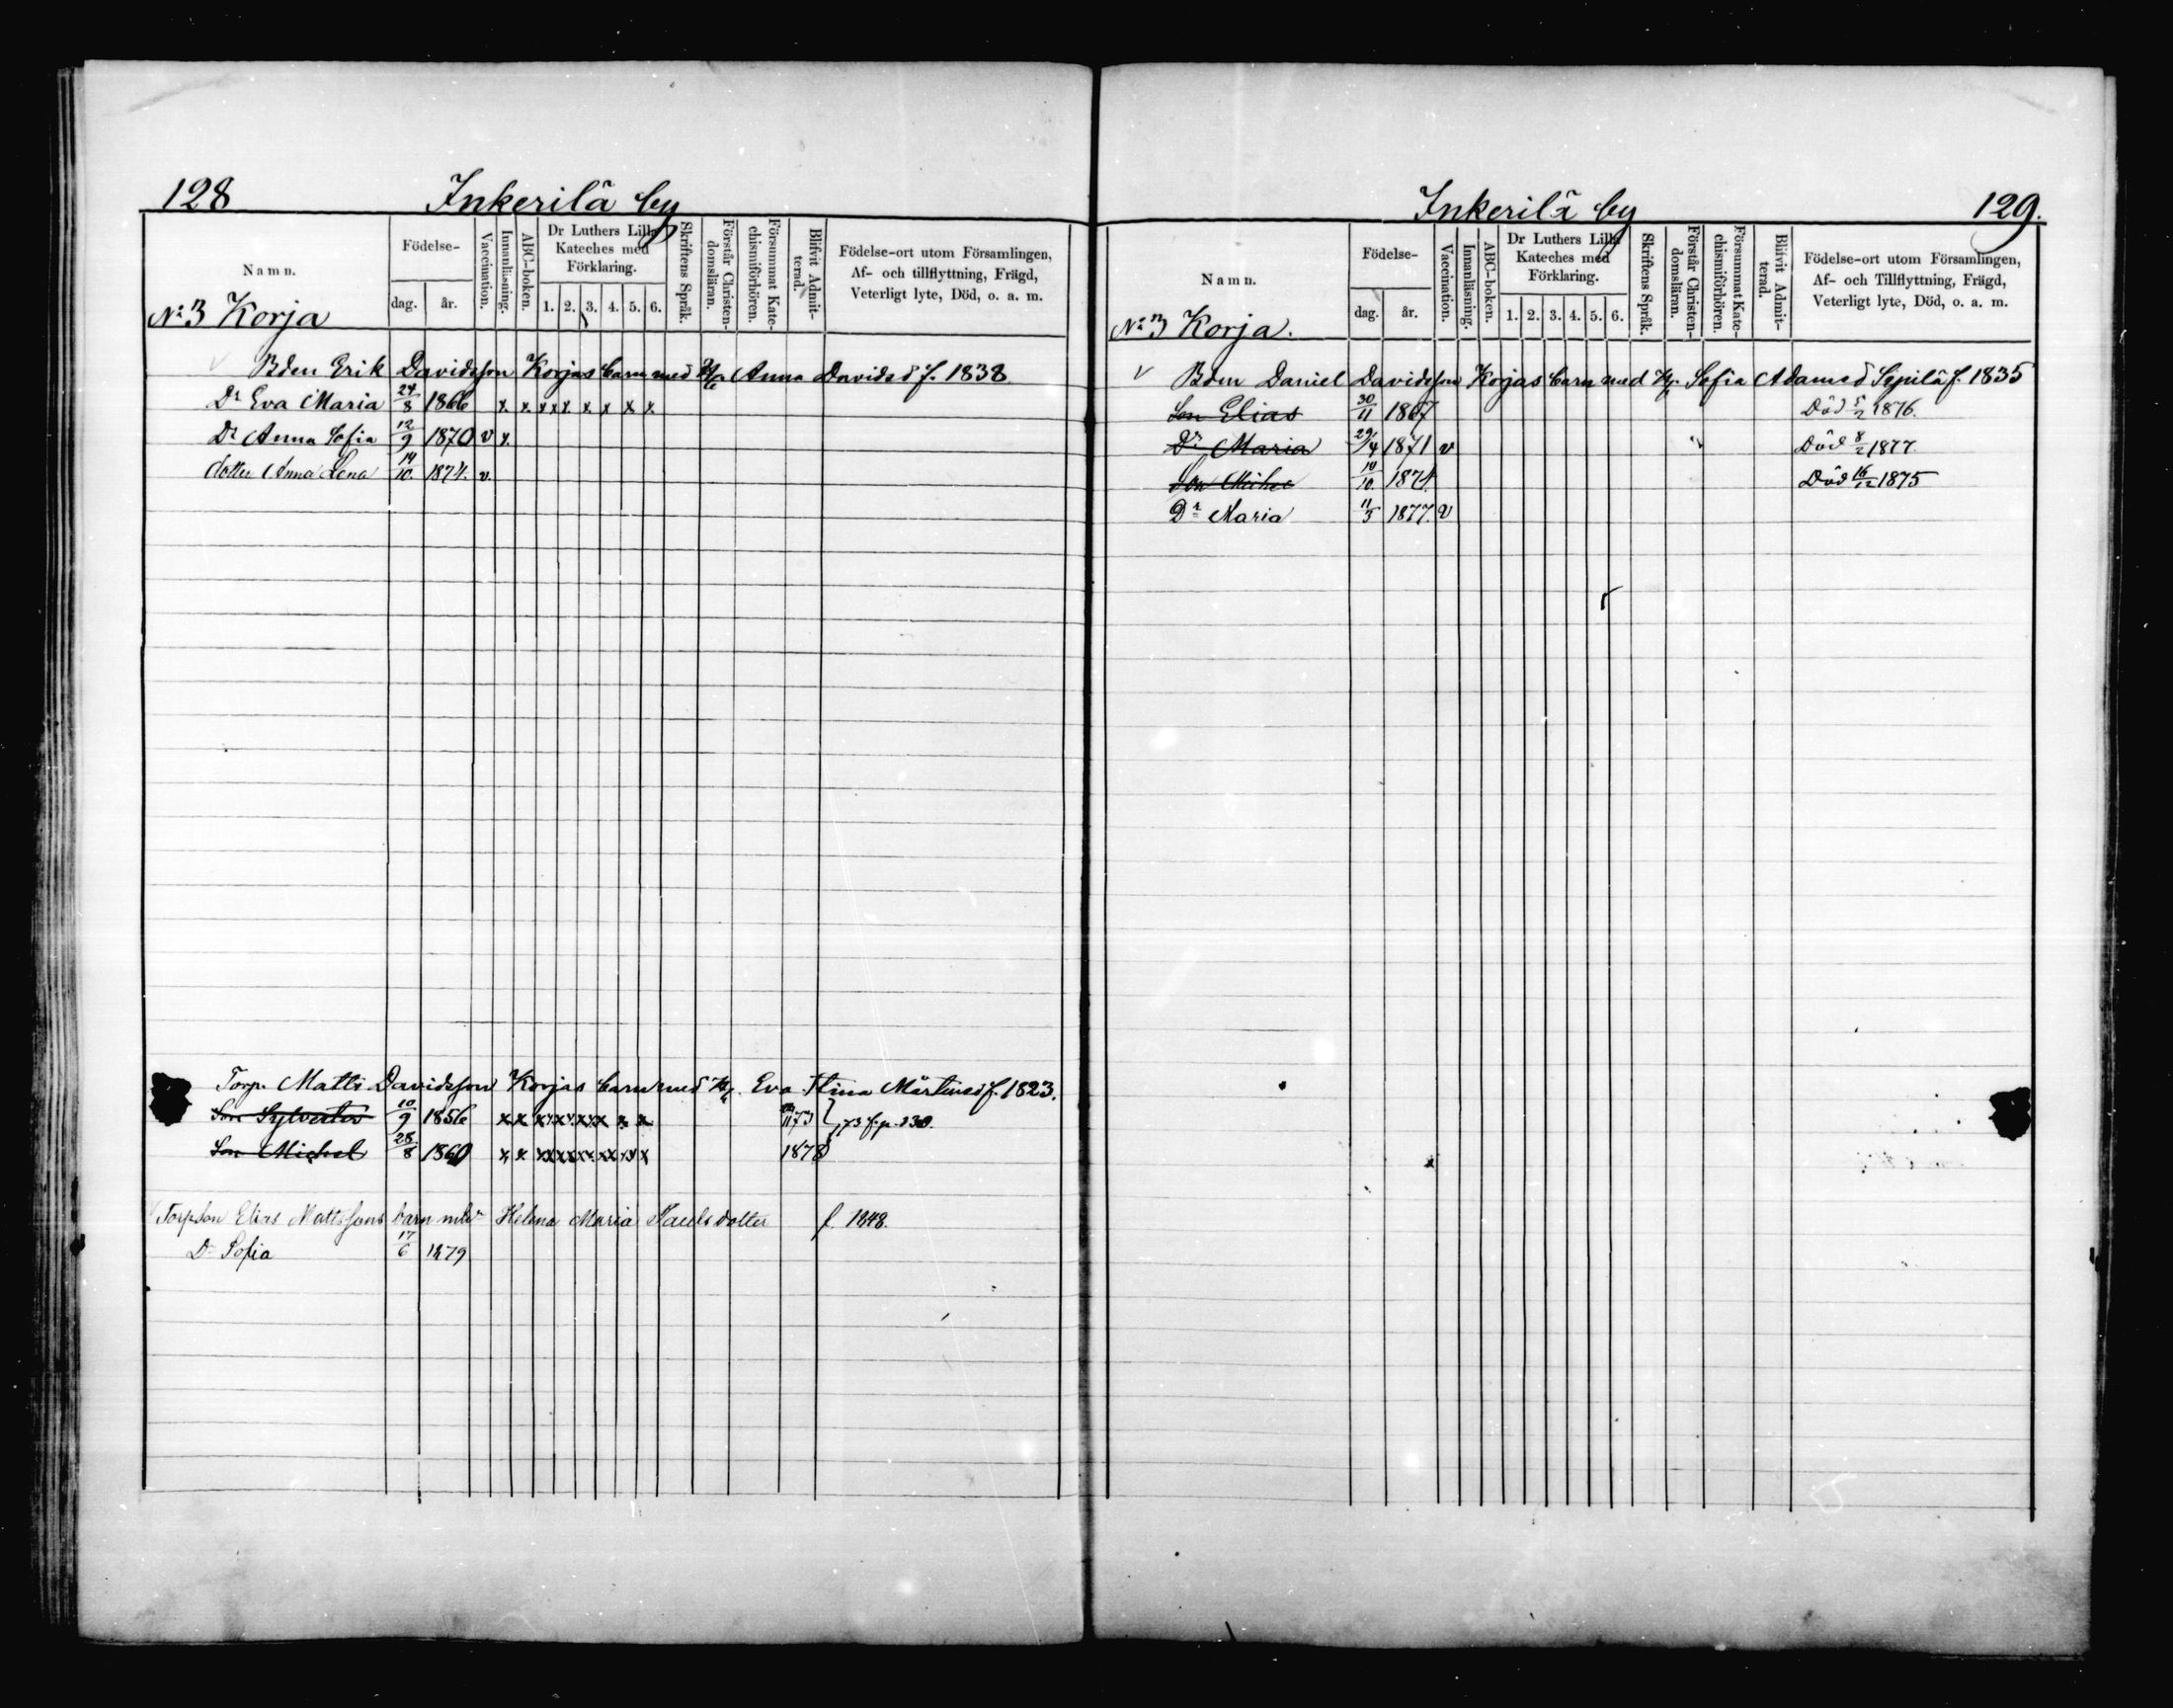 128 Inkerilä by
Namn. Födelse- dag. år. Vaccination. Innanläsning. ABC-boken. Dr Luthers Lilla Kateches med Förklaring. 1. 2. 3. 4. 5. 6. Skriftens Språk. Förstår Christendomsläran. Försummat Katechismiförhören. Blifvit Admitterad. Födelse-ort utom Församlingen, Af- och tillflyttning, Frägd, Veterligt lyte, Död, o. a. m.
No 3 Korja
Bden Erik Davidsson Korjas barn med Anna Davidsd f. 1838
Dr Eva Maria 24/8 1866 x x x x x x x x x
Dr Anna Sofia 12/9 1870 v x
dotter Anna Lena 14/10. 1874. v.
Torp. Matts Davidsson Korjas barn med H. Eva Stina Mårtensd f. 1823.
Son Sylvester 10/9 1856 x x x x x x x x x 73 f. p. 230.
Son Michel 28/8 1860 x x x x x x x x x x 1878
Torpson Elias Mattssons barn med Helena Maria Paulsdotter f. 1848.
Dr Sofia 17/6 1879
Inkerilä by 129.
Namn. Födelse- dag. år. Vaccination. Innanläsning. ABC-boken. Dr Luthers Lilla Kateches med Förklaring. 1. 2. 3. 4. 5. 6. Skriftens Språk. Förstår Christendomsläran. Försummat Katechismiförhören. Blifvit Admitterad. Födelse-ort utom Församlingen, Af- och Tillflyttning, Frägd, Veterligt lyte, Död, o. a. m.
No 3 Korja.
v Bden Daniel Davidsson Korjas barn med H. Sofia Adamsd Sepilä f. 1835
Son Elias 30/11 1867 Död 5/2 1876.
Dr Maria 29/4 1871 v Död 8/2 1877.
Son Michel 10/10. 1874. Död 16/12 1875
Dr Maria 11/5 1877. v